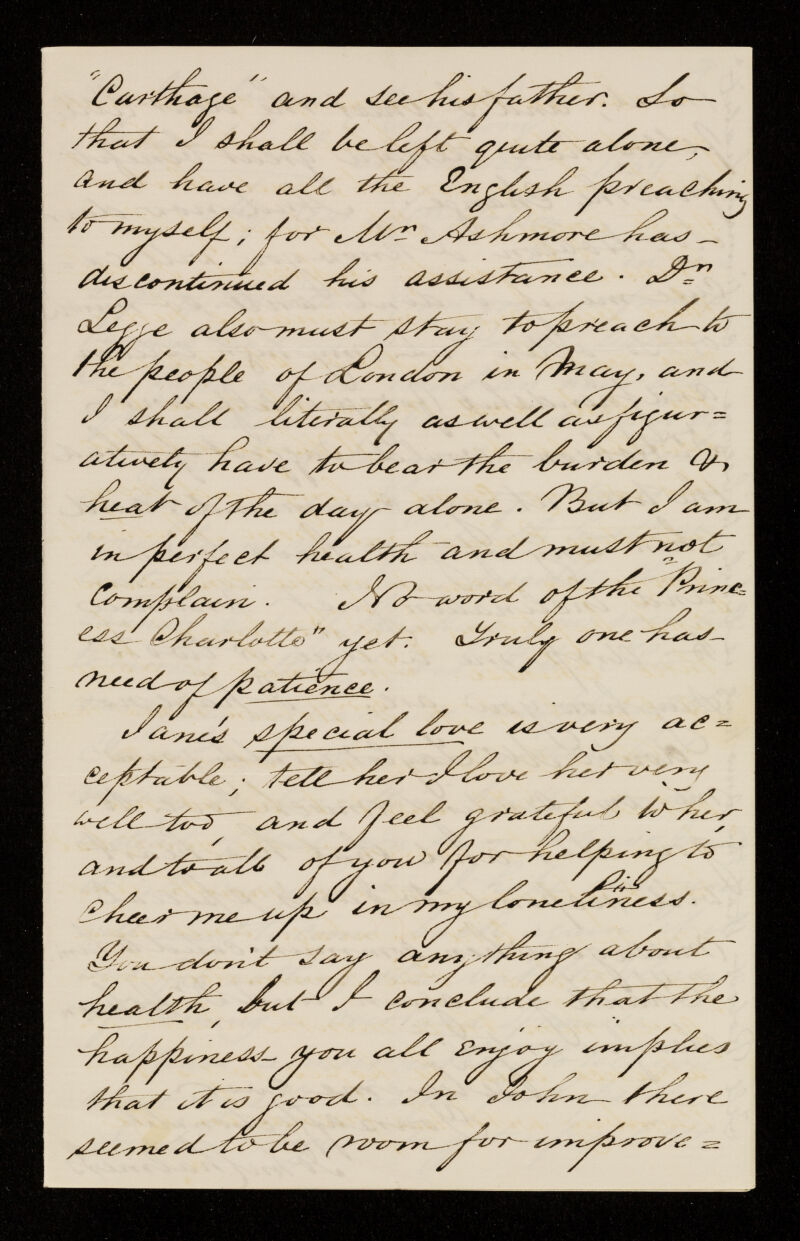 "Carthage" and see his father. So
that I shall be left quite alone,
and have all the English preaching
to myself; for Mr Ashmore has
discontinued his assistance. Dr
Legge also must stay to preach to
the people of London in May, and
I shall literally as well as figur=
atively have to bear the burden &
heat of the day alone. But I am
in perfect health and must not
complain. No word of the "Princ=
ess Charlotte" yet. Truly one has
need of patience.
Jane's special love is very ac=
ceptable; tell her I love her very
well too, and feel grateful to her,
and to all of you for helping to
cheer me up in my loneliness.
You don't say anything about
health, but I conclude that the
happiness you all enjoy implies
that it is good. In John there
seemed to be room for improve=